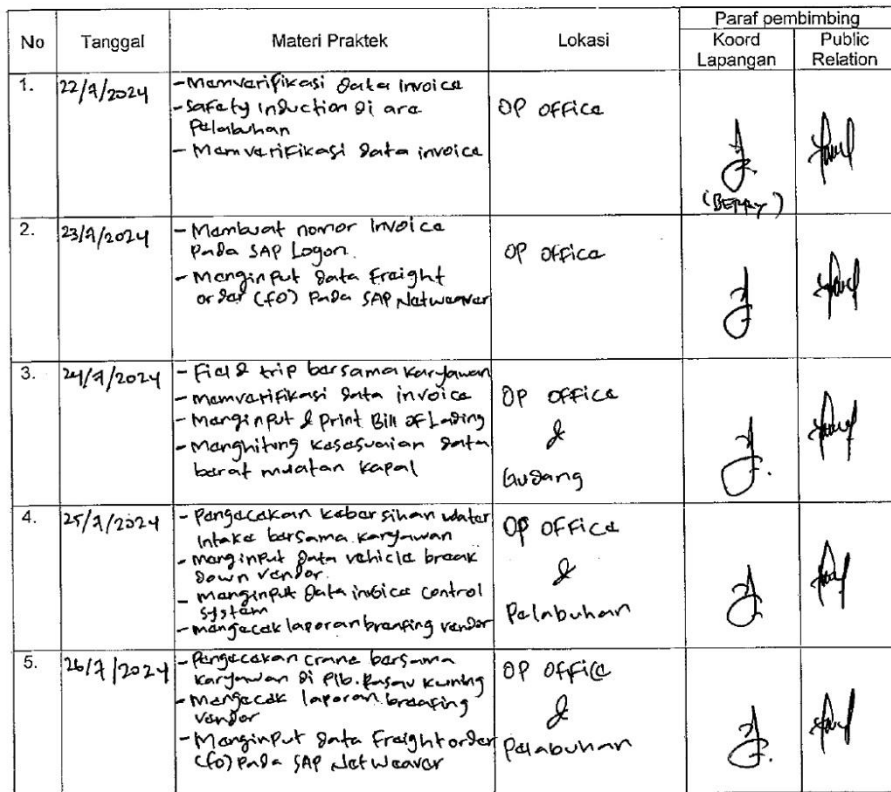 No Tanggal Materi Praktek Lokasi Paraf pembimbing
Koord Lapangan Public Relation
1. 22/7/2024 - Memverifikasi data invoice
- Safety induction di area
Pelabuhan
- Memverifikasi data invoice
OP office
(BERRY)
2. 23/7/2024 - Membuat nomor invoice
pada SAP Logon.
- Menginput data Freight
order (fo) pada SAP Netweaver
OP office
3. 24/7/2024 - Field trip bersama karyawan
- memverifikasi data invoice
- Menginput & Print Bill of Lading
- Menghitung kesesuaian data
berat muatan kapal
OP office
&
Gudang
4. 25/7/2024 - Pengecekan kebersihan water
intake bersama karyawan
- menginput data vehicle break
down vendor.
- menginput data invoice control
system
- mengecek laporan breafing vendor
OP office
&
Pelabuhan
5. 26/7/2024 - Pengecekan crane bersama
karyawan di Plb. Rasau Kuning
- Mengecek laporan breafing
vendor
- Menginput data Freight order
(fo) pada SAP Net Weaver
OP office
&
Pelabuhan